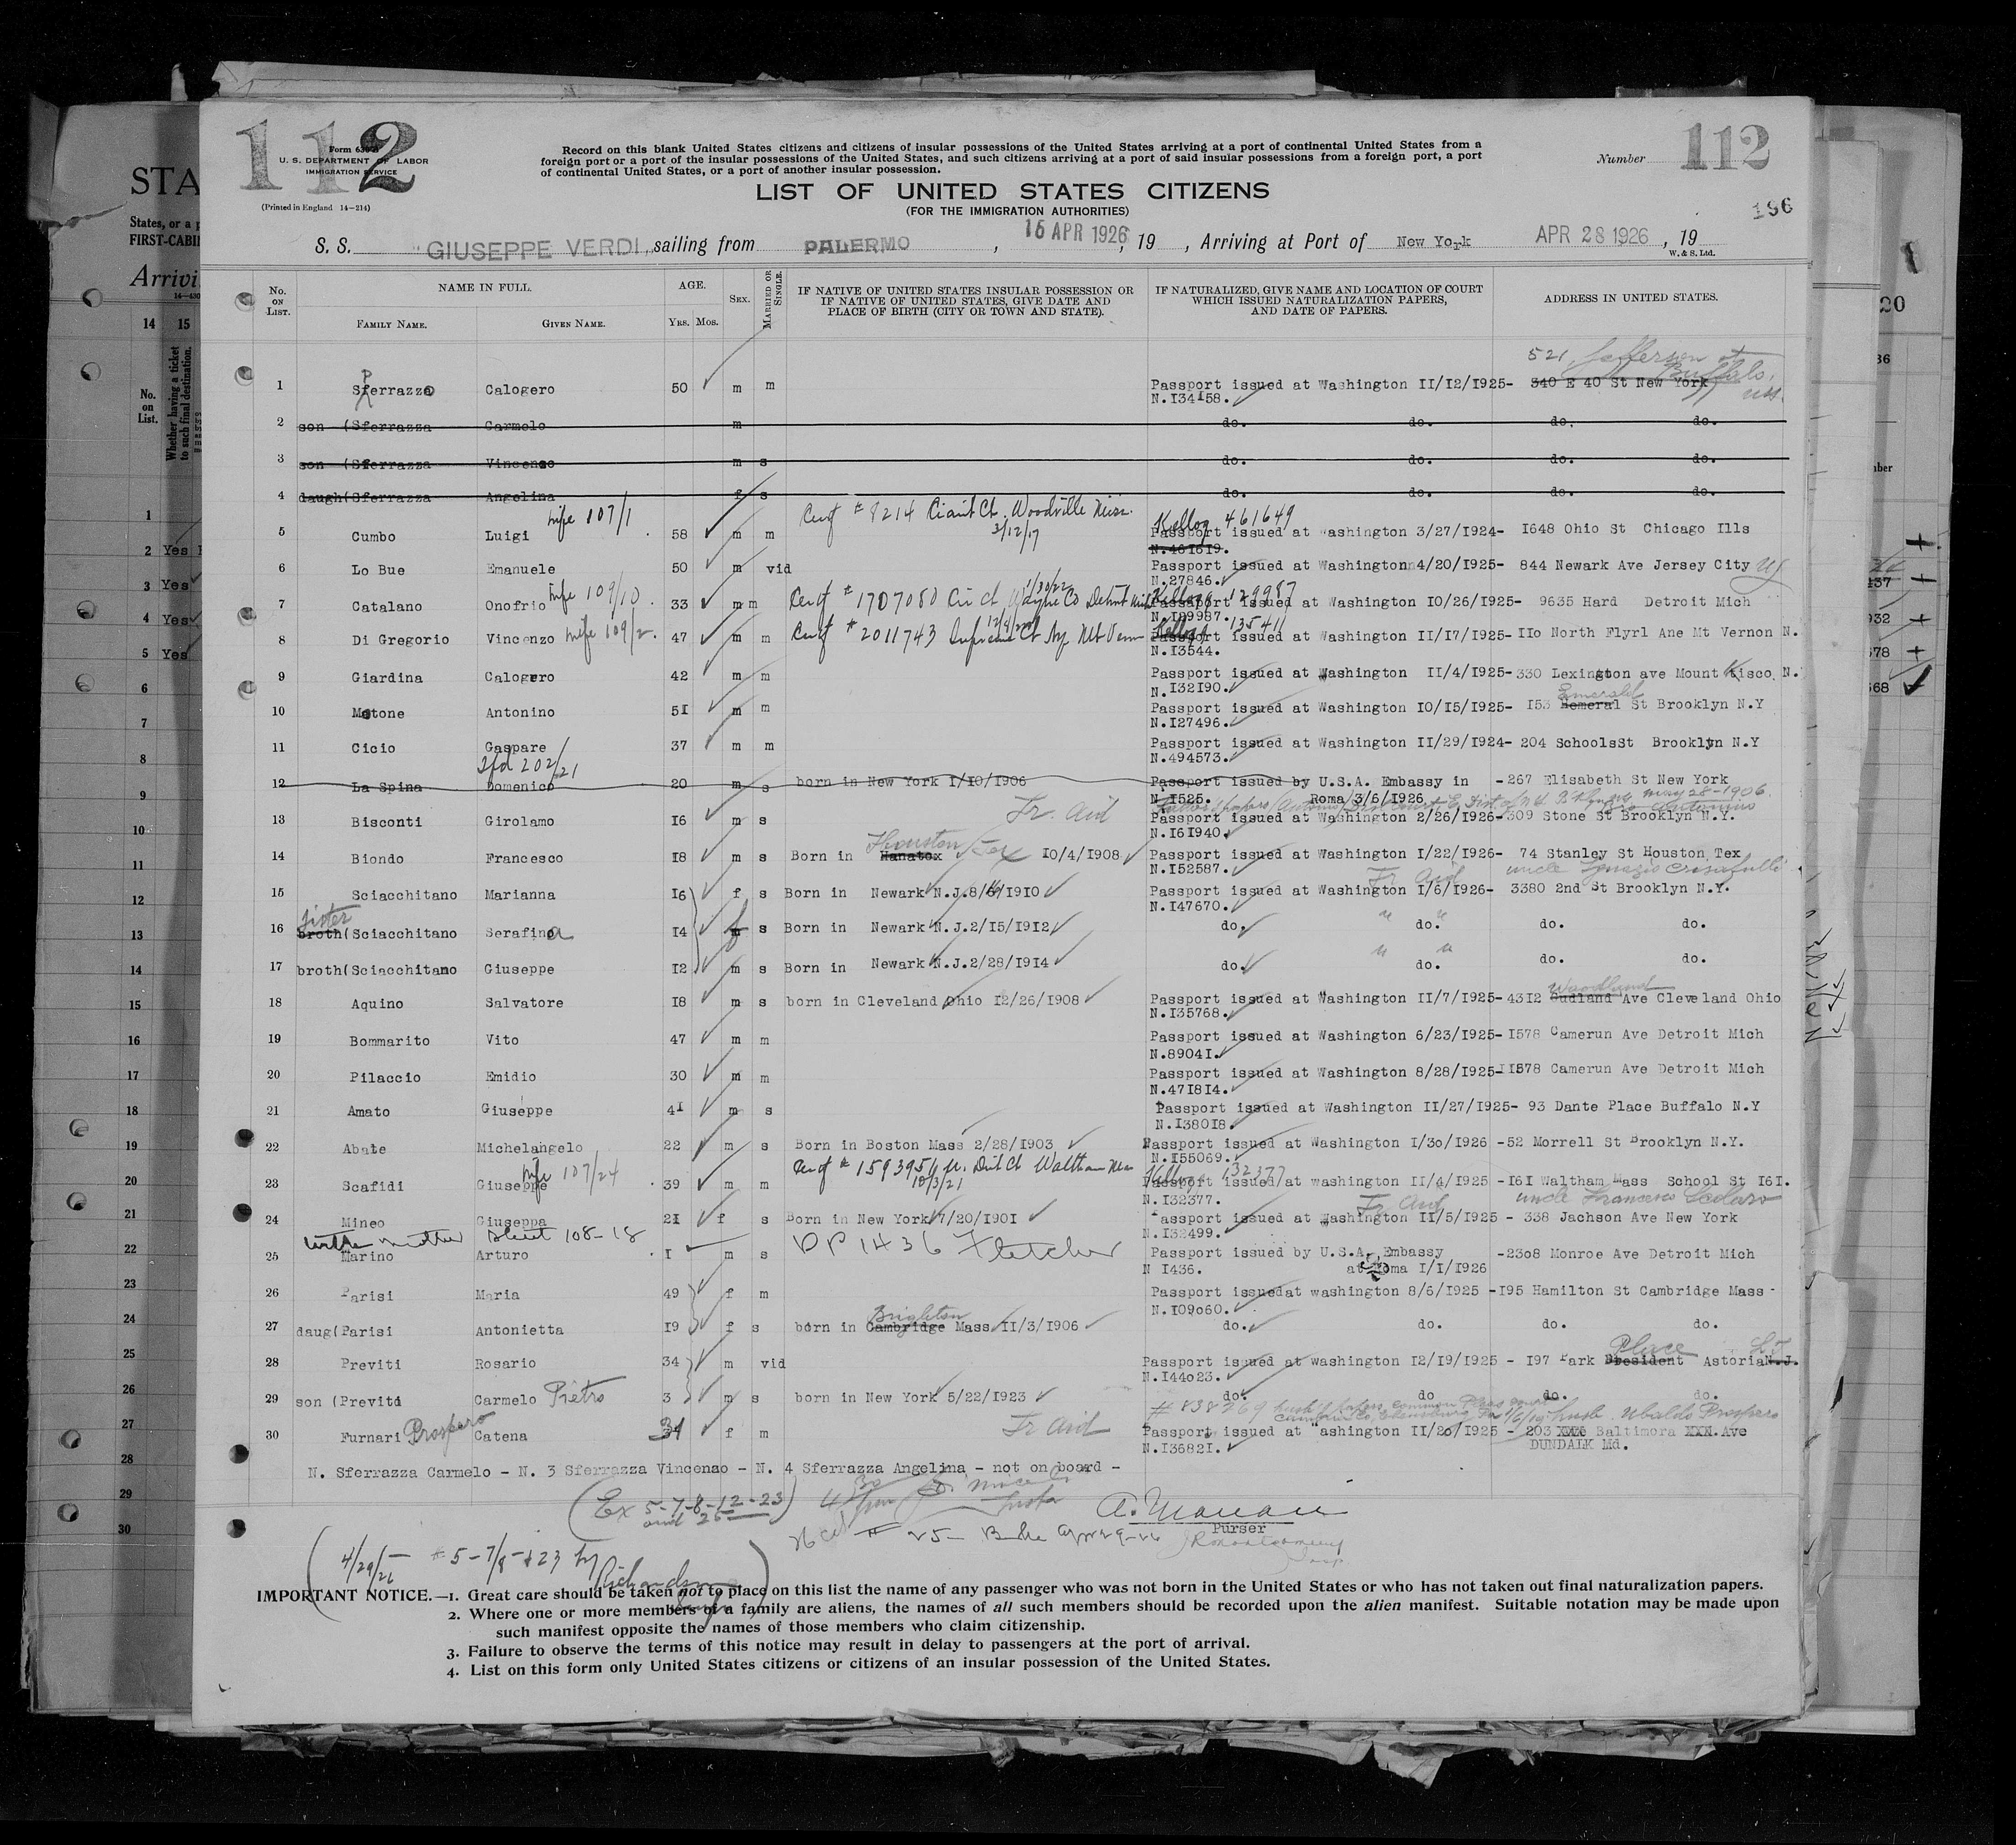 112
Form 630 B
U. S. DEPARTMENT OF LABOR
IMMIGRATION SERVICE
(Printed in England 14—214)
Record on this blank United States citizens and citizens of insular possessions of the United States arriving at a port of continental United States from a
foreign port or a port of the insular possessions of the United States, and such citizens arriving at a port of said insular possessions from a foreign port, a port
of continental United States, or a port of another insular possession.
Number 112
LIST OF UNITED STATES CITIZENS
(FOR THE IMMIGRATION AUTHORITIES)
196
S. S. GIUSEPPE VERDI, sailing from PALERMO, 15 APR 1926, 19 , Arriving at Port of New York APR 28 1926, 19
W. & S. Ltd.
No. ON LIST. NAME IN FULL. FAMILY NAME. GIVEN NAME. AGE. YRS. MOS. SEX. MARRIED OR SINGLE. IF NATIVE OF UNITED STATES INSULAR POSSESSION OR IF NATIVE OF UNITED STATES, GIVE DATE AND PLACE OF BIRTH (CITY OR TOWN AND STATE). IF NATURALIZED, GIVE NAME AND LOCATION OF COURT WHICH ISSUED NATURALIZATION PAPERS, AND DATE OF PAPERS. ADDRESS IN UNITED STATES.
521 Jefferson st Buffalo
1 Sferrazza Calogero 50 m m Passport issued at Washington II/I2/I925- 340 E 40 St New York
N.I34I58.
2 son (Sferrazza Carmelo m do. do. do. do.
3 son (Sferrazza Vincenzo m s do. do. do. do.
4 daugh(Sferrazza Angelina f s do. do. do. do.
wife 107/1 Cert # 8214 Ct. Woodville Miss. 3/12/17 Kellog 461649
5 Cumbo Luigi 58 m m Passport issued at Washington 3/27/I924- I648 Ohio St Chicago Ills
N.46I6I9.
6 Lo Bue Emanuele 50 m vid Passport issued at Washington 4/20/I925- 844 Newark Ave Jersey City
N.27846.
wife 109/10 Cert # 1707080 Cir ct Wayne Co Detroit Mich 1/30/22 Kellogg 129987
7 Catalano Onofrio 33 m m Passport issued at Washington I0/26/I925- 9635 Hard Detroit Mich
N.I29987.
wife 109/2 Cert # 2011743 Supreme Ct Ny Mt Vern Kellogg 135411
8 Di Gregorio Vincenzo 47 m m Passport issued at Washington II/I7/I925- IIo North Flyrl Ane Mt Vernon N.
N.I3544.
9 Giardina Calogero 42 m m Passport issued at Washington II/4/I925- 330 Lexington ave Mount Kisco N.
N.I32I90.
10 Motone Antonino 5I m m Passport issued at Washington I0/I5/I925- I53 Homeral St Brooklyn N.Y
N.I27496.
11 Cicio Gaspare 37 m m Passport issued at Washington II/29/I924- 204 SchoolsSt Brooklyn N.Y
N.494573.
202/21
12 La Spina Domenico 20 m s born in New York I/I0/I906 Passport issued by U.S.A. Embassy in -267 Elisabeth St New York
N.I525. Roma 3/6/I926
13 Bisconti Girolamo I6 m s Fr. Aid Passport issued at Washington 2/26/I926- 309 Stone St Brooklyn N.Y.
N.I6I940.
14 Biondo Francesco I8 m s Born in Hanatox Houston Tex I0/4/I908 Passport issued at Washington I/22/I926- 74 Stanley St Houston Tex
N.I52587.
15 Sciacchitano Marianna I6 f s Born in Newark N.J.8/6/I9I0 Passport issued at Washington I/6/I926- 3380 2nd St Brooklyn N.Y.
N.I47670.
sister
16 broth(Sciacchitano Serafina I4 f s Born in Newark N.J.2/I5/I9I2 do. do. do. do.
17 broth(Sciacchitano Giuseppe I2 m s Born in Newark N.J.2/28/I9I4 do. do. do. do.
Woodland
18 Aquino Salvatore I8 m s born in Cleveland Ohio I2/26/I908 Passport issued at Washington II/7/I925- 43I2 Oudland Ave Cleveland Ohio
N.I35768.
19 Bommarito Vito 47 m m Passport issued at Washington 6/23/I925- I578 Camerun Ave Detroit Mich
N.8904I.
20 Pilaccio Emidio 30 m m Passport issued at Washington 8/28/I925- II578 Camerun Ave Detroit Mich
N.47I8I4.
21 Amato Giuseppe 4I m s Passport issued at Washington II/27/I925- 93 Dante Place Buffalo N.Y
N.I380I8.
22 Abate Michelangelo 22 m s Born in Boston Mass 2/28/I903 Passport issued at Washington I/30/I926 -52 Morrell St Brooklyn N.Y.
N.I55069.
wife 107/24 Dist Ct Waltham 10/3/21 Kellogg 132377
23 Scafidi Giuseppe 39 m m Passport issued at Washington II/4/I925 -I6I Waltham Mass School St I6I.
N.I32377.
Fr Aid uncle Francesco
24 Mineo Giuseppa 2I f s Born in New York 7/20/I90I Passport issued at Washington II/5/I925 - 338 Jachson Ave New York
N.I32499.
with mother sheet 108-18
25 Marino Arturo I m s DP 1436 Fletcher Passport issued by U.S.A. Embassy -2308 Monroe Ave Detroit Mich
N I436. at Roma I/I/I926
26 Parisi Maria 49 f m Passport issuedat washington 8/6/I925 -I95 Hamilton St Cambridge Mass
N.I09060.
Brighton
27 daug(Parisi Antonietta I9 f s born in Cambridge Mass II/3/I906 do. do. do. do.
Place
28 Previti Rosario 34 m vid Passport issued at washington I2/I9/I925 - I97 Park President Astoria N.J.
N.I44023.
29 son (Previti Carmelo Pietro 3 m s born in New York 5/22/I923 do. do do. do.
# 838269 husb's papers common Pleas court husb. Ubaldo Prospero
30 Furnari Prospero Catena 34 f m Fr Aid Passport issued at Washington II/20/I925 - 203 XXX Baltimora XXX.Ave
N.I3682I. DUNDALK Md.
N. Sferrazza Carmelo - N. 3 Sferrazza Vincenzo - N. 4 Sferrazza Angelina - not on board -
(Ex 5-7-8-12-23)
and 25
Purser
(4/29/26 #5-7/8-&23 by Richardson)
IMPORTANT NOTICE.—1. Great care should be taken not to place on this list the name of any passenger who was not born in the United States or who has not taken out final naturalization papers.
2. Where one or more members of a family are aliens, the names of all such members should be recorded upon the alien manifest. Suitable notation may be made upon
such manifest opposite the names of those members who claim citizenship.
3. Failure to observe the terms of this notice may result in delay to passengers at the port of arrival.
4. List on this form only United States citizens or citizens of an insular possession of the United States.